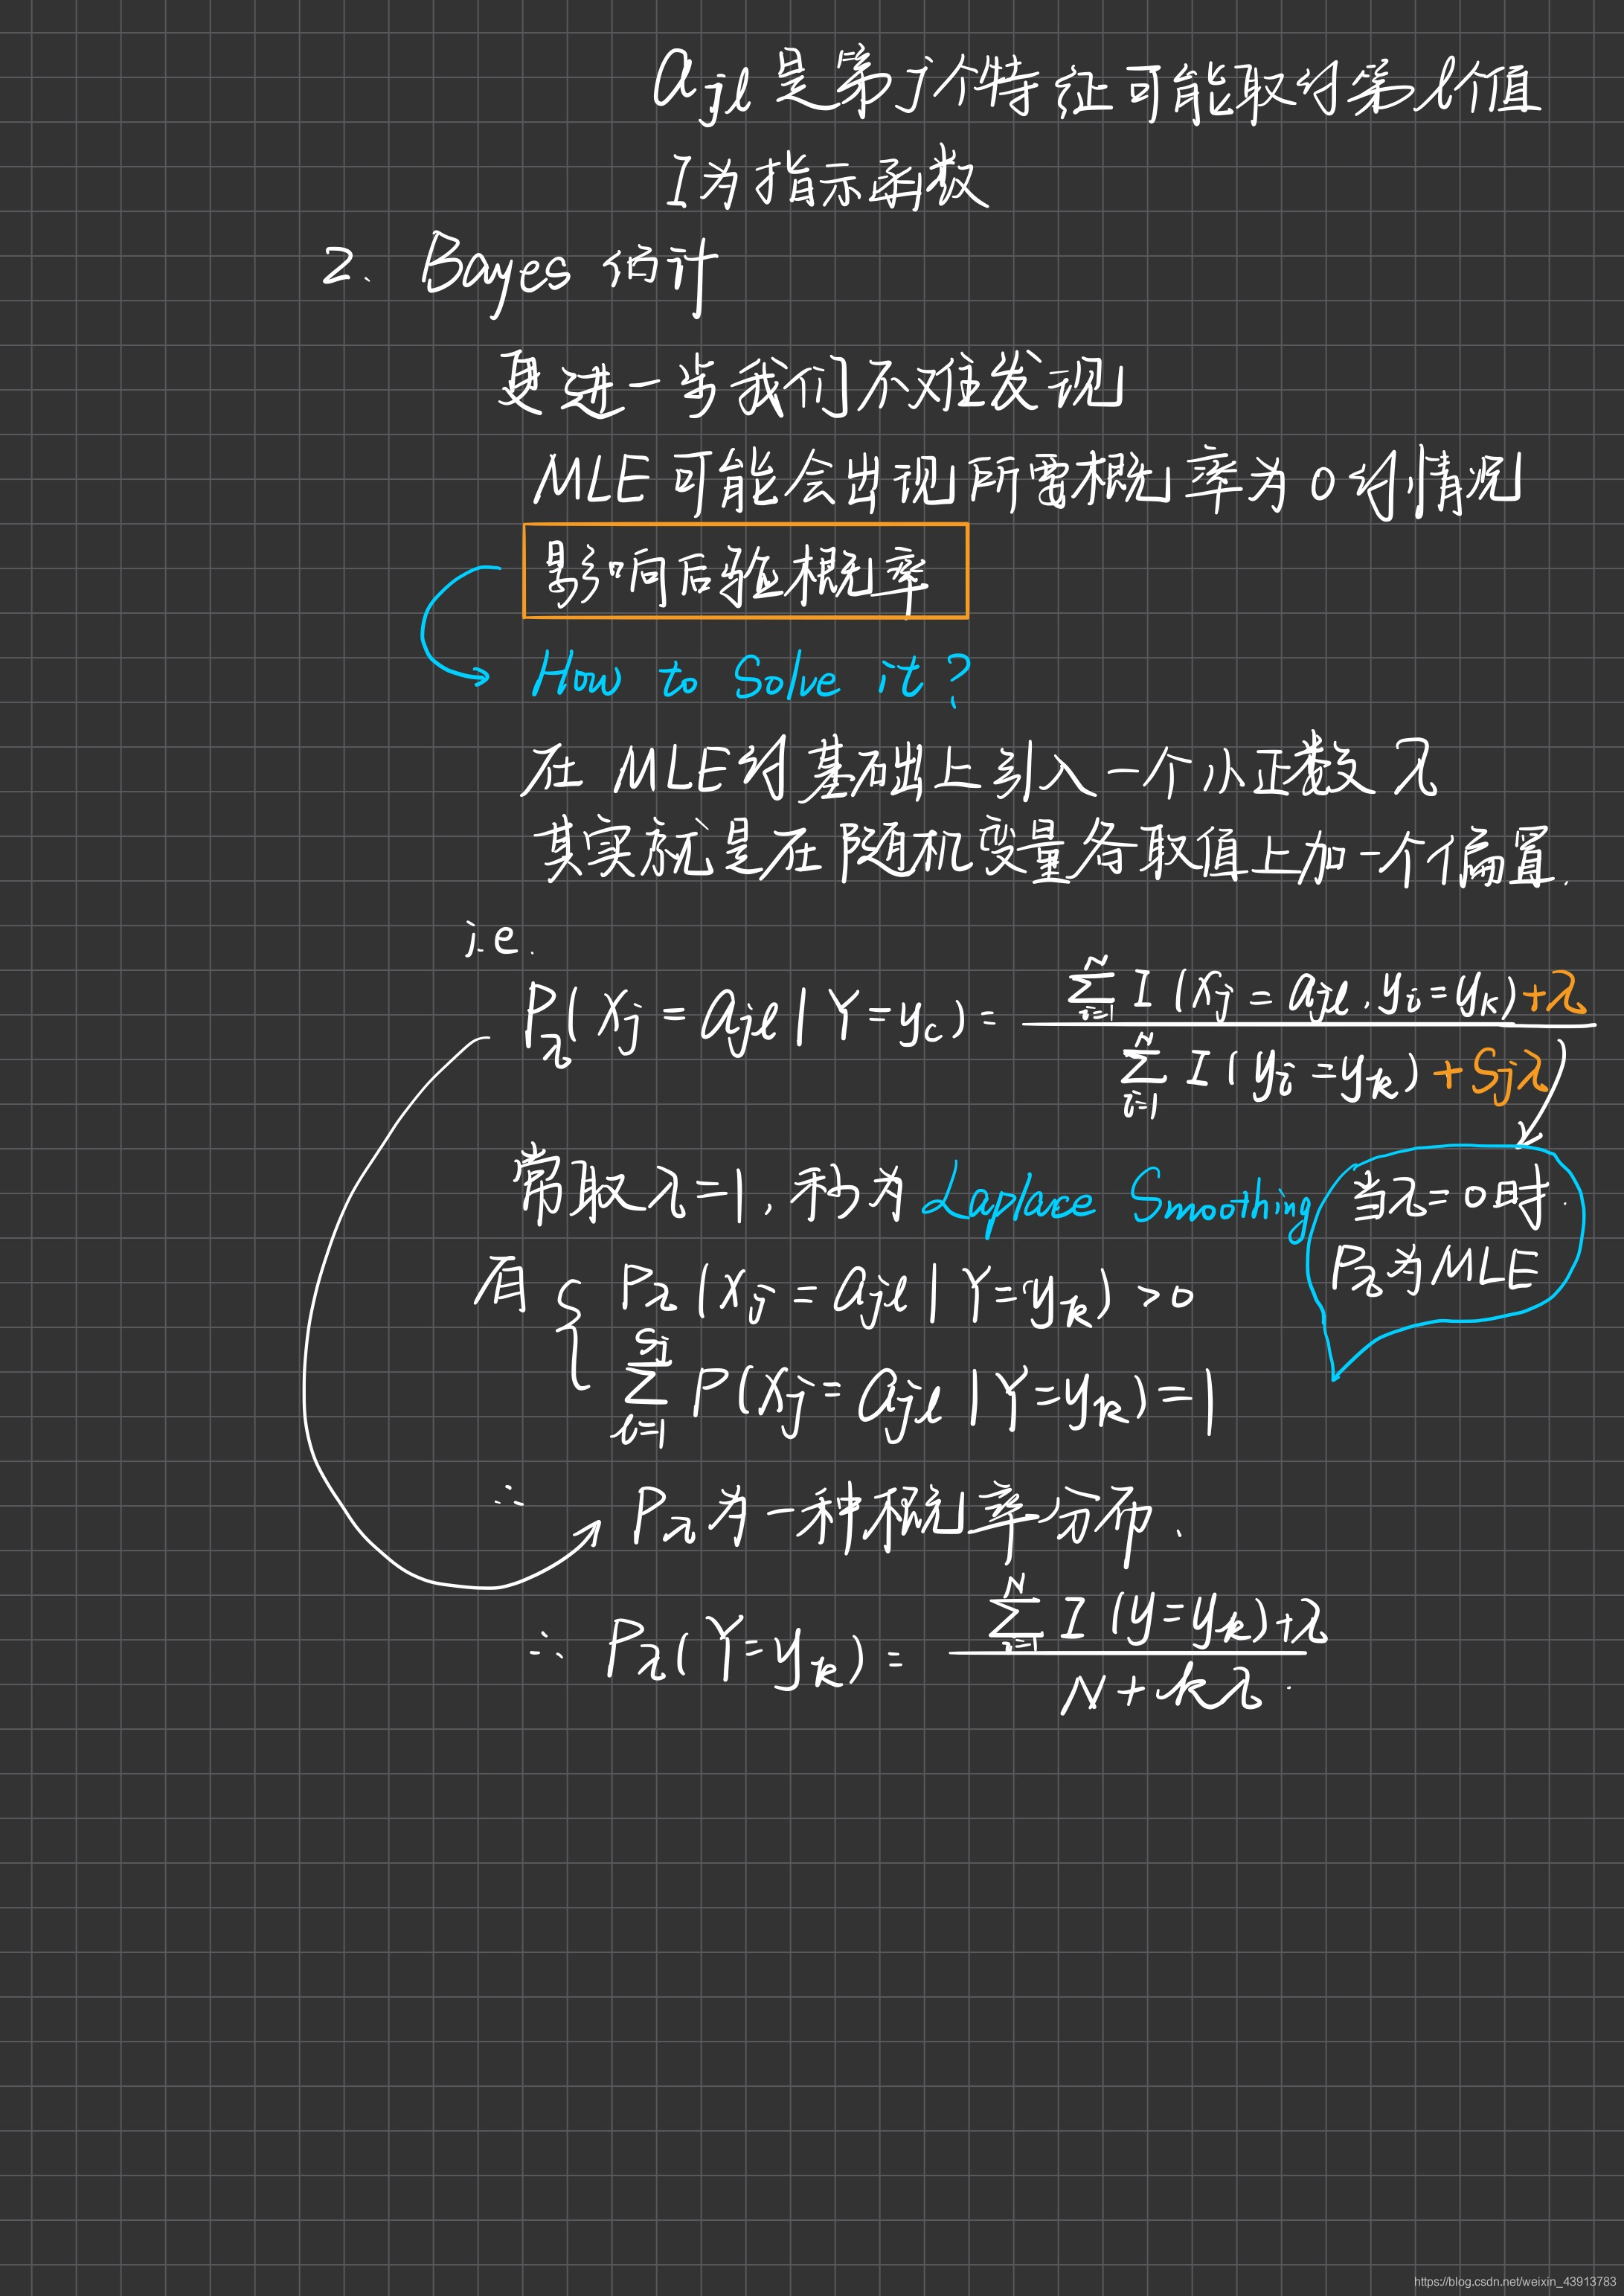 a_{jl}是第j个特征可能取的第l个值
I为指示函数
2. Bayes 估计
更进一步我们不难发现
MLE可能会出现所需概率为0的情况
影响后验概率
How to Solve it?
在MLE的基础上引入一个小正数λ
其实就是在随机变量各取值上加一个偏置.
i.e.
P_λ(X_j = a_{jl} | Y = y_c) = \frac{\sum_{i=1}^{N} I(X_j = a_{jl}, y_i = y_k) + λ}{\sum_{i=1}^{N} I(y_i = y_k) + S_j λ}
常取λ=1, 称为 Laplace Smoothing
当λ=0时.
P_λ为MLE
有 { P_λ(X_j = a_{jl} | Y = y_k) > 0
\sum_{l=1}^{S_j} P(X_j = a_{jl} | Y = y_k) = 1
∴ P_λ为一种概率分布.
∴ P_λ(Y = y_k) = \frac{\sum_{i=1}^{N} I(y = y_k) + λ}{N + kλ}.
https://blog.csdn.net/weixin_43913783